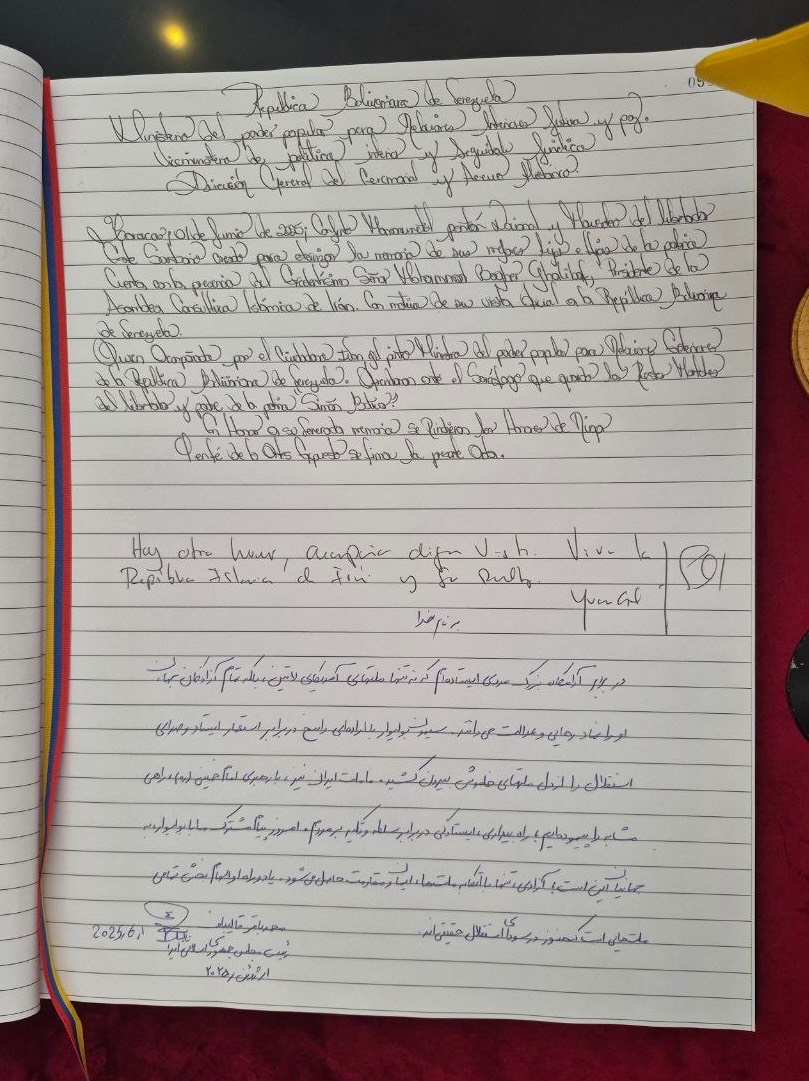 República Bolivariana de Venezuela
Ministerio del poder popular para Relaciones Interiores Justicia y paz.
Viceministerio de política interior y Seguridad Jurídica
Dirección General del Ceremonial y Acervo Histórico.
Caracas, 01 de Junio de 2025; Conjunto Monumental panteón Nacional y Mausoleo del libertador
Este Santuario creado para la memoria de sus mejores hijos e hijas de la patria
Cuenta con la presencia del Señor Mohammad Bagher Ghalibaf, Presidente de la
Asamblea Consultiva Islámica de Irán. Con motivo de su visita a la República Bolivariana
de Venezuela.
Quien Acompañado por el Ciudadano Ivan gil pinto Ministro del poder popular para Relaciones Exteriores
de la República Bolivariana de Venezuela. ante el Sarcófago que guarda los Restos Mortales
del libertador y padre de la patria "Simón Bolívar"
En Honor a su Venerada memoria se Rindieron los Honores de Rigor
Y en fé de lo Antes Expuesto se firma la presente Acta.
Hoy otro honor, Viva la
República Islámica de Irán y su
Yvan Gil
به نام خدا
در برابر آرامگاه بزرگ مردی ایستاده‌ام که نه تنها ملتهای آمریکای لاتین، بلکه تمام آزادگان جهان
او را نماد رهایی و عدالت می‌دانند. سیمون بولیوار با اراده‌ای راسخ در برابر استعمار ایستاد و صدای
استقلال را از دل ملتهای خاموش بیرون کشید. ما ملت ایران نیز، با رهبری امام خمینی (ره) راهی
مشابه را پیموده‌ایم؛ راه بیداری، ایستادگی در برابر سلطه و تکیه بر مردم. امروز پیام مشترک ما با بولیوار به
جهانیان این است: آزادی، تنها با اتکا به ملت‌ها، ایمان و مقاومت حاصل می‌شود. یاد و راه او الهام بخش تمامی
ملتهایی است که هنوز در سودای استقلال حقیقی‌اند.
محمدباقر قالیباف
2025,6,1
رئیس مجلس جمهوری اسلامی ایران
اول ژوئن ۲۰۲۵